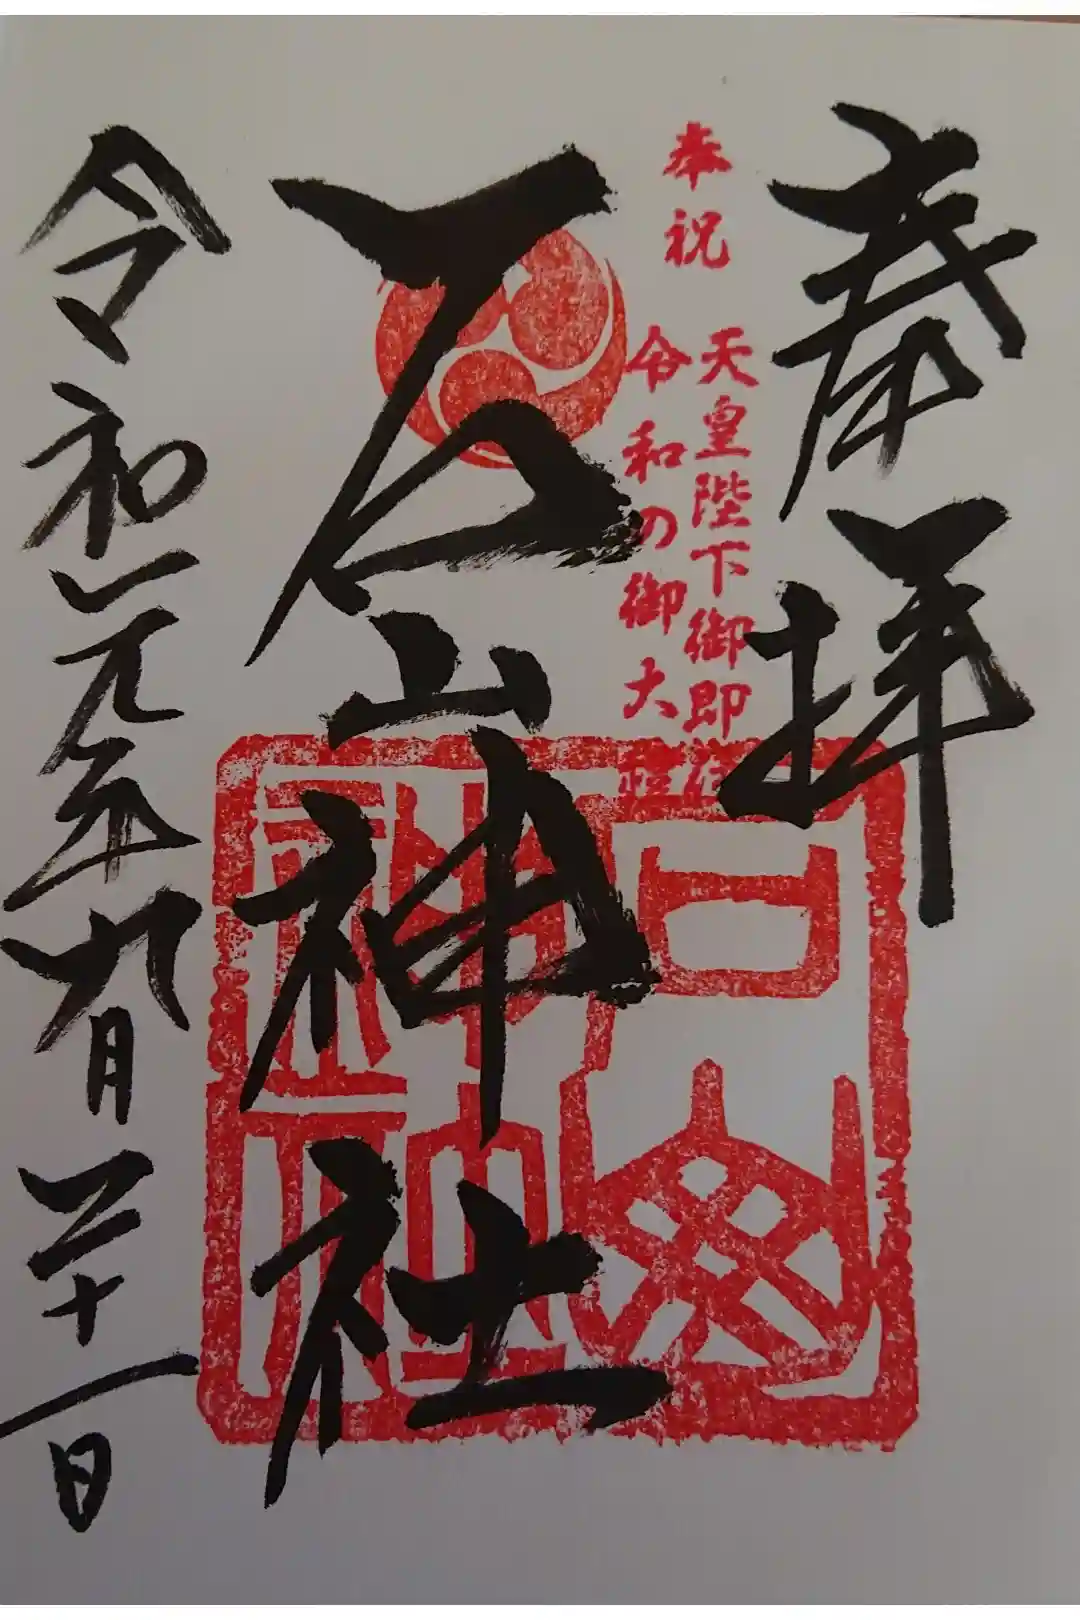 奉拝
奉祝
天皇陛下御即位
令和の御大禮
石山神社
令和元年九月二十一日